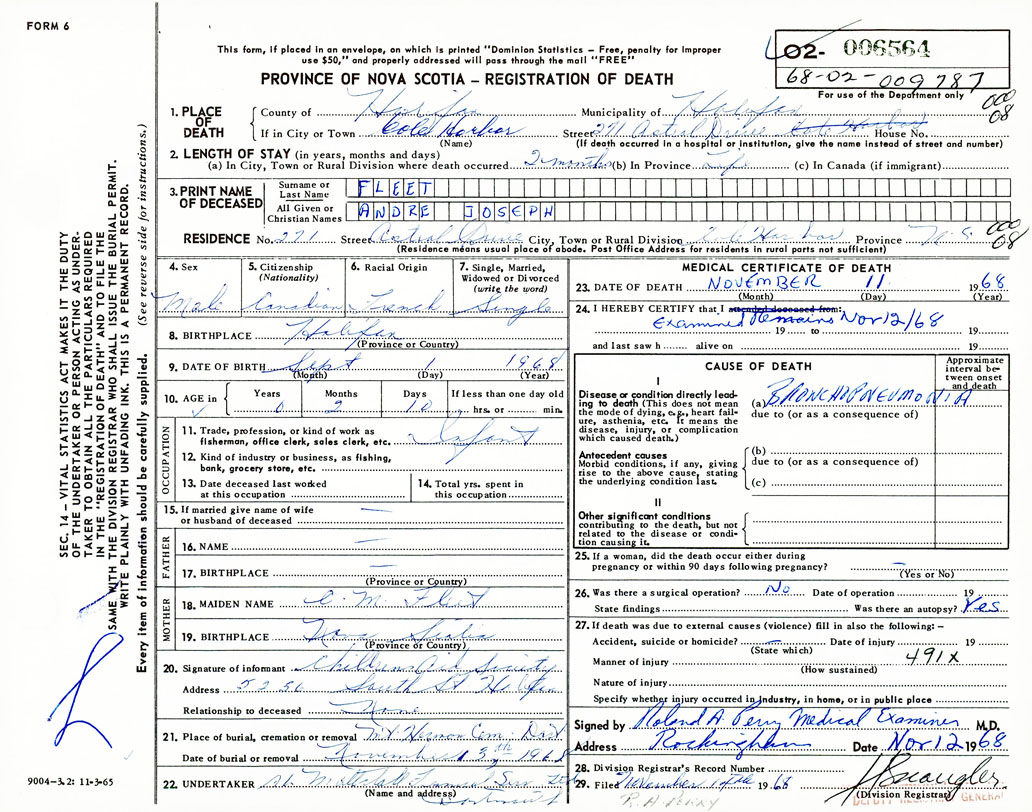 FORM 6
This form, if placed in an envelope, on which is printed "Dominion Statistics – Free, penalty for improper
use $50," and properly addressed will pass through the mail "FREE"
PROVINCE OF NOVA SCOTIA – REGISTRATION OF DEATH
02- 006564
68-02-009787
For use of the Department only
000
08
1. PLACE OF DEATH
County of Halifax Municipality of Halifax
If in City or Town Cole Harbor Street 271 Astral Drive House No.
(Name) (If death occurred in a hospital or institution, give the name instead of street and number)
2. LENGTH OF STAY (in years, months and days)
(a) In City, Town or Rural Division where death occurred 2 months (b) In Province Life (c) In Canada (if immigrant)
3. PRINT NAME OF DECEASED
Surname or Last Name FLEET
All Given or Christian Names ANDRE JOSEPH
RESIDENCE No. 271 Street Astral Drive City, Town or Rural Division Province N.S.
(Residence means usual place of abode. Post Office Address for residents in rural parts not sufficient)
000
08
4. Sex Male
5. Citizenship (Nationality) Canadian
6. Racial Origin French
7. Single, Married, Widowed or Divorced (write the word) Single
8. BIRTHPLACE Halifax
(Province or Country)
9. DATE OF BIRTH Sept 1 1968
(Month) (Day) (Year)
10. AGE in Years 0 Months 2 Days 10 If less than one day old hrs. or min.
OCCUPATION
11. Trade, profession, or kind of work as fisherman, office clerk, sales clerk, etc. Infant
12. Kind of industry or business, as fishing, bank, grocery store, etc.
13. Date deceased last worked at this occupation
14. Total yrs. spent in this occupation
15. If married give name of wife or husband of deceased —
FATHER
16. NAME —
17. BIRTHPLACE —
(Province or Country)
MOTHER
18. MAIDEN NAME C. M. Fleet
19. BIRTHPLACE Nova Scotia
(Province or Country)
20. Signature of informant Childrens Aid Society
Address 5250 South St Halifax
Relationship to deceased None
21. Place of burial, cremation or removal Mt Hermon Cem. Dart
Date of burial or removal November 13th 1968
22. UNDERTAKER
(Name and address)
MEDICAL CERTIFICATE OF DEATH
23. DATE OF DEATH NOVEMBER 11 1968
(Month) (Day) (Year)
24. I HEREBY CERTIFY that I attended deceased from:
Examined Remains Nov 12/68
19 to 19
and last saw h alive on 19
CAUSE OF DEATH
Approximate interval between onset and death
I
Disease or condition directly leading to death (This does not mean the mode of dying, e.g., heart failure, asthenia, etc. It means the disease, injury, or complication which caused death.)
(a) BRONCHOPNEUMONIA
due to (or as a consequence of)
Antecedent causes
Morbid conditions, if any, giving rise to the above cause, stating the underlying condition last.
(b)
due to (or as a consequence of)
(c)
II
Other significant conditions
contributing to the death, but not related to the disease or condition causing it.
25. If a woman, did the death occur either during pregnancy or within 90 days following pregnancy? —
(Yes or No)
26. Was there a surgical operation? No Date of operation 19
State findings Was there an autopsy? Yes
27. If death was due to external causes (violence) fill in also the following:–
Accident, suicide or homicide? — Date of injury 19
(State which)
491X
Manner of injury
(How sustained)
Nature of injury
Specify whether injury occurred in industry, in home, or in public place
Signed by Roland A. Perry Medical Examiner M.D.
Address Rockingham Date Nov 12 1968
28. Division Registrar's Record Number
29. Filed November 19
(Division Registrar)
R. A. PERRY
DEPUTY REGISTRAR GENERAL
SEC. 14 – VITAL STATISTICS ACT MAKES IT THE DUTY
OF THE UNDERTAKER OR PERSON ACTING AS UNDER-
TAKER TO OBTAIN ALL THE PARTICULARS REQUIRED
IN THE "REGISTRATION OF DEATH" AND TO FILE THE
SAME WITH THE DIVISION REGISTRAR WHO SHALL ISSUE THE BURIAL PERMIT.
WRITE PLAINLY WITH UNFADING INK. THIS IS A PERMANENT RECORD.
Every item of information should be carefully supplied. (See reverse side for instructions.)
9004-3.2: 11-3-65